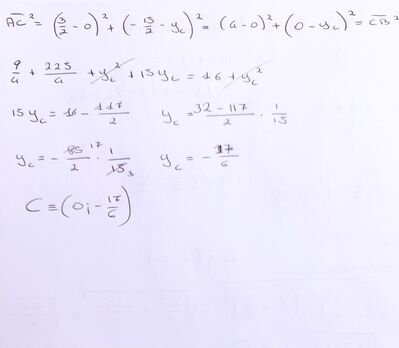 AC² = (3/2 - 0)² + (-15/2 - y_c)² = (4 - 0)² + (0 - y_c)² = CB²
9/4 + 225/4 + y_c² + 15 y_c = 16 + y_c²
15 y_c = 16 - 117/2    y_c = 32 - 117/2 · 1/15
y_c = - 85/2 17 · 1/15 3    y_c = - 17/6
C ≡ (0; - 17/6)